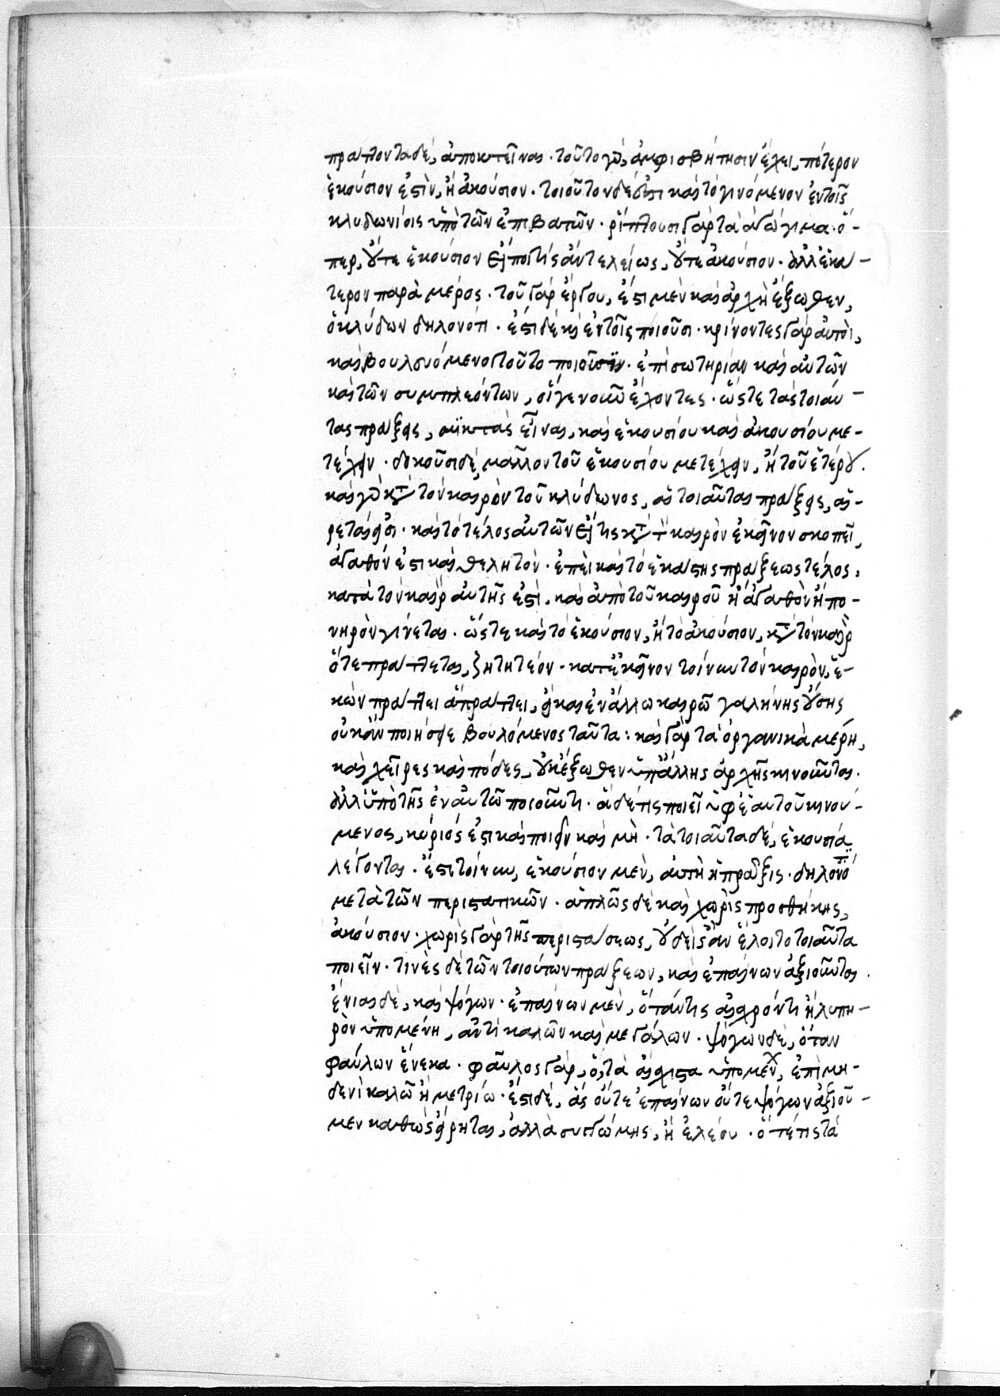 πράττοντα δὲ, ἀποκτεῖναι · τοῦτο γὰρ, ἀμφισβήτησιν ἔχει, πότερον
ἑκούσιον ἐστὶν, ἢ ἀκούσιον · τοιοῦτον δέ ἐστι καὶ τὸ γινόμενον ἐν τοῖς
κλυδωνίοις ὑπὸ τῶν ἐπιβατῶν · ῥίπτουσι γὰρ τὰ ἀγώγιμα · ὅ-
περ, οὔτε ἑκούσιον εἴποι τις ἂν τελείως, οὔτε ἀκούσιον · ἀλλ' ἑκά-
τερον παρὰ μέρος · τοῦ γὰρ ἔργου, ἔστι μὲν καὶ ἀρχὴ ἔξωθεν,
ὁ κλύδων δηλονότι · ἔστι δὲ καὶ ἐν τοῖς ποιοῦσι · κρίνοντες γὰρ αὐτοὶ,
καὶ βουλευόμενοι τοῦτο ποιοῦσιν · ἐπὶ σωτηρίαν καὶ αὐτῶν
καὶ τῶν συμπλεόντων, οἵ γε νοῦν ἔχοντες · ὥστε τὰς τοιαύ-
τας πράξεις, μικτὰς εἶναι, καὶ ἑκουσίου καὶ ἀκουσίου με-
τέχειν · δοκοῦσι δὲ, μᾶλλον τοῦ ἑκουσίου μετέχειν, ἢ τοῦ ἑτέρου.
καὶ γὰρ κατὰ τὸν καιρὸν τοῦ κλύδωνος, αἱ τοιαῦται πράξεις, αἱ-
ρεταί εἰσι · καὶ τὸ τέλος αὐτῶν εἴ τις κατὰ τὸν καιρὸν ἐκεῖνον σκοπεῖ,
ἀγαθόν ἐστι καὶ θελητόν · ἐπεὶ καὶ τὸ ἑκάστης πράξεως τέλος,
κατὰ τὸν καιρὸν αὐτῆς ἐστί · καὶ ἀπὸ τοῦ καιροῦ ἢ ἀγαθὸν ἢ πο-
νηρὸν γίνεται · ὥστε καὶ τὸ ἑκούσιον, ἢ τὸ ἀκούσιον, κατὰ τὸν καιρὸν
ὅτε πράττεται, ζητητέον · κατ' ἐκεῖνον τοίνυν τὸν καιρὸν, ἑ-
κὼν πράττει ἃ πράττει, εἰ καὶ ἐν ἄλλω καιρῶ γαλήνης οὔσης
οὐκ ἂν ποιήσειε βουλόμενος ταῦτα : καὶ γὰρ τὰ ὀργανικὰ μέρη,
καὶ χεῖρες καὶ πόδες, οὐκ ἔξωθεν ὑπ' ἄλλης ἀρχῆς κινοῦνται ·
ἀλλ' ὑπὸ τῆς ἐν αὐτῶ ποιοῦντι · ἃ δέ τις ποιεῖ ὑφ' ἑαυτοῦ κινού-
μενος, κύριός ἐστι καὶ ποιεῖν καὶ μὴ · τὰ τοιαῦτα δὲ, ἑκούσια
λέγονται · ἔστι τοίνυν, ἑκούσιον μὲν, αὐτὴ ἡ πρᾶξις · δηλονότι
μετὰ τῶν περιστατικῶν · ἁπλῶς δὲ καὶ χωρὶς προσθήκης,
ἀκούσιον · χωρὶς γὰρ τῆς περιστάσεως, οὐδεὶς ἂν ἕλοιτο τοιαῦτα
ποιεῖν · τινὲς δὲ τῶν τοιούτων πράξεων, καὶ ἐπαίνων ἀξιοῦνται ·
ἔνιαι δὲ, καὶ ψόγων · ἐπαίνων μὲν, ὅταν τις αἰσχρόν τι ἢ λυπη-
ρὸν ὑπομένη, ἀντὶ καλῶν καὶ μεγάλων · ψόγων δὲ, ὅταν
φαύλων ἕνεκα · φαῦλος γὰρ, ὃς τὰ αἴσχιστα ὑπομένει, ἐπὶ μη-
δενὶ καλῶ ἢ μετρίω · ἔστι δὲ, ἃς οὔτε ἐπαίνων οὔτε ψόγων ἀξιοῦ-
μεν καθὼς εἴρηται, ἀλλὰ συγγνώμης, ἢ ἐλέου · ὅτέ τις τὰ